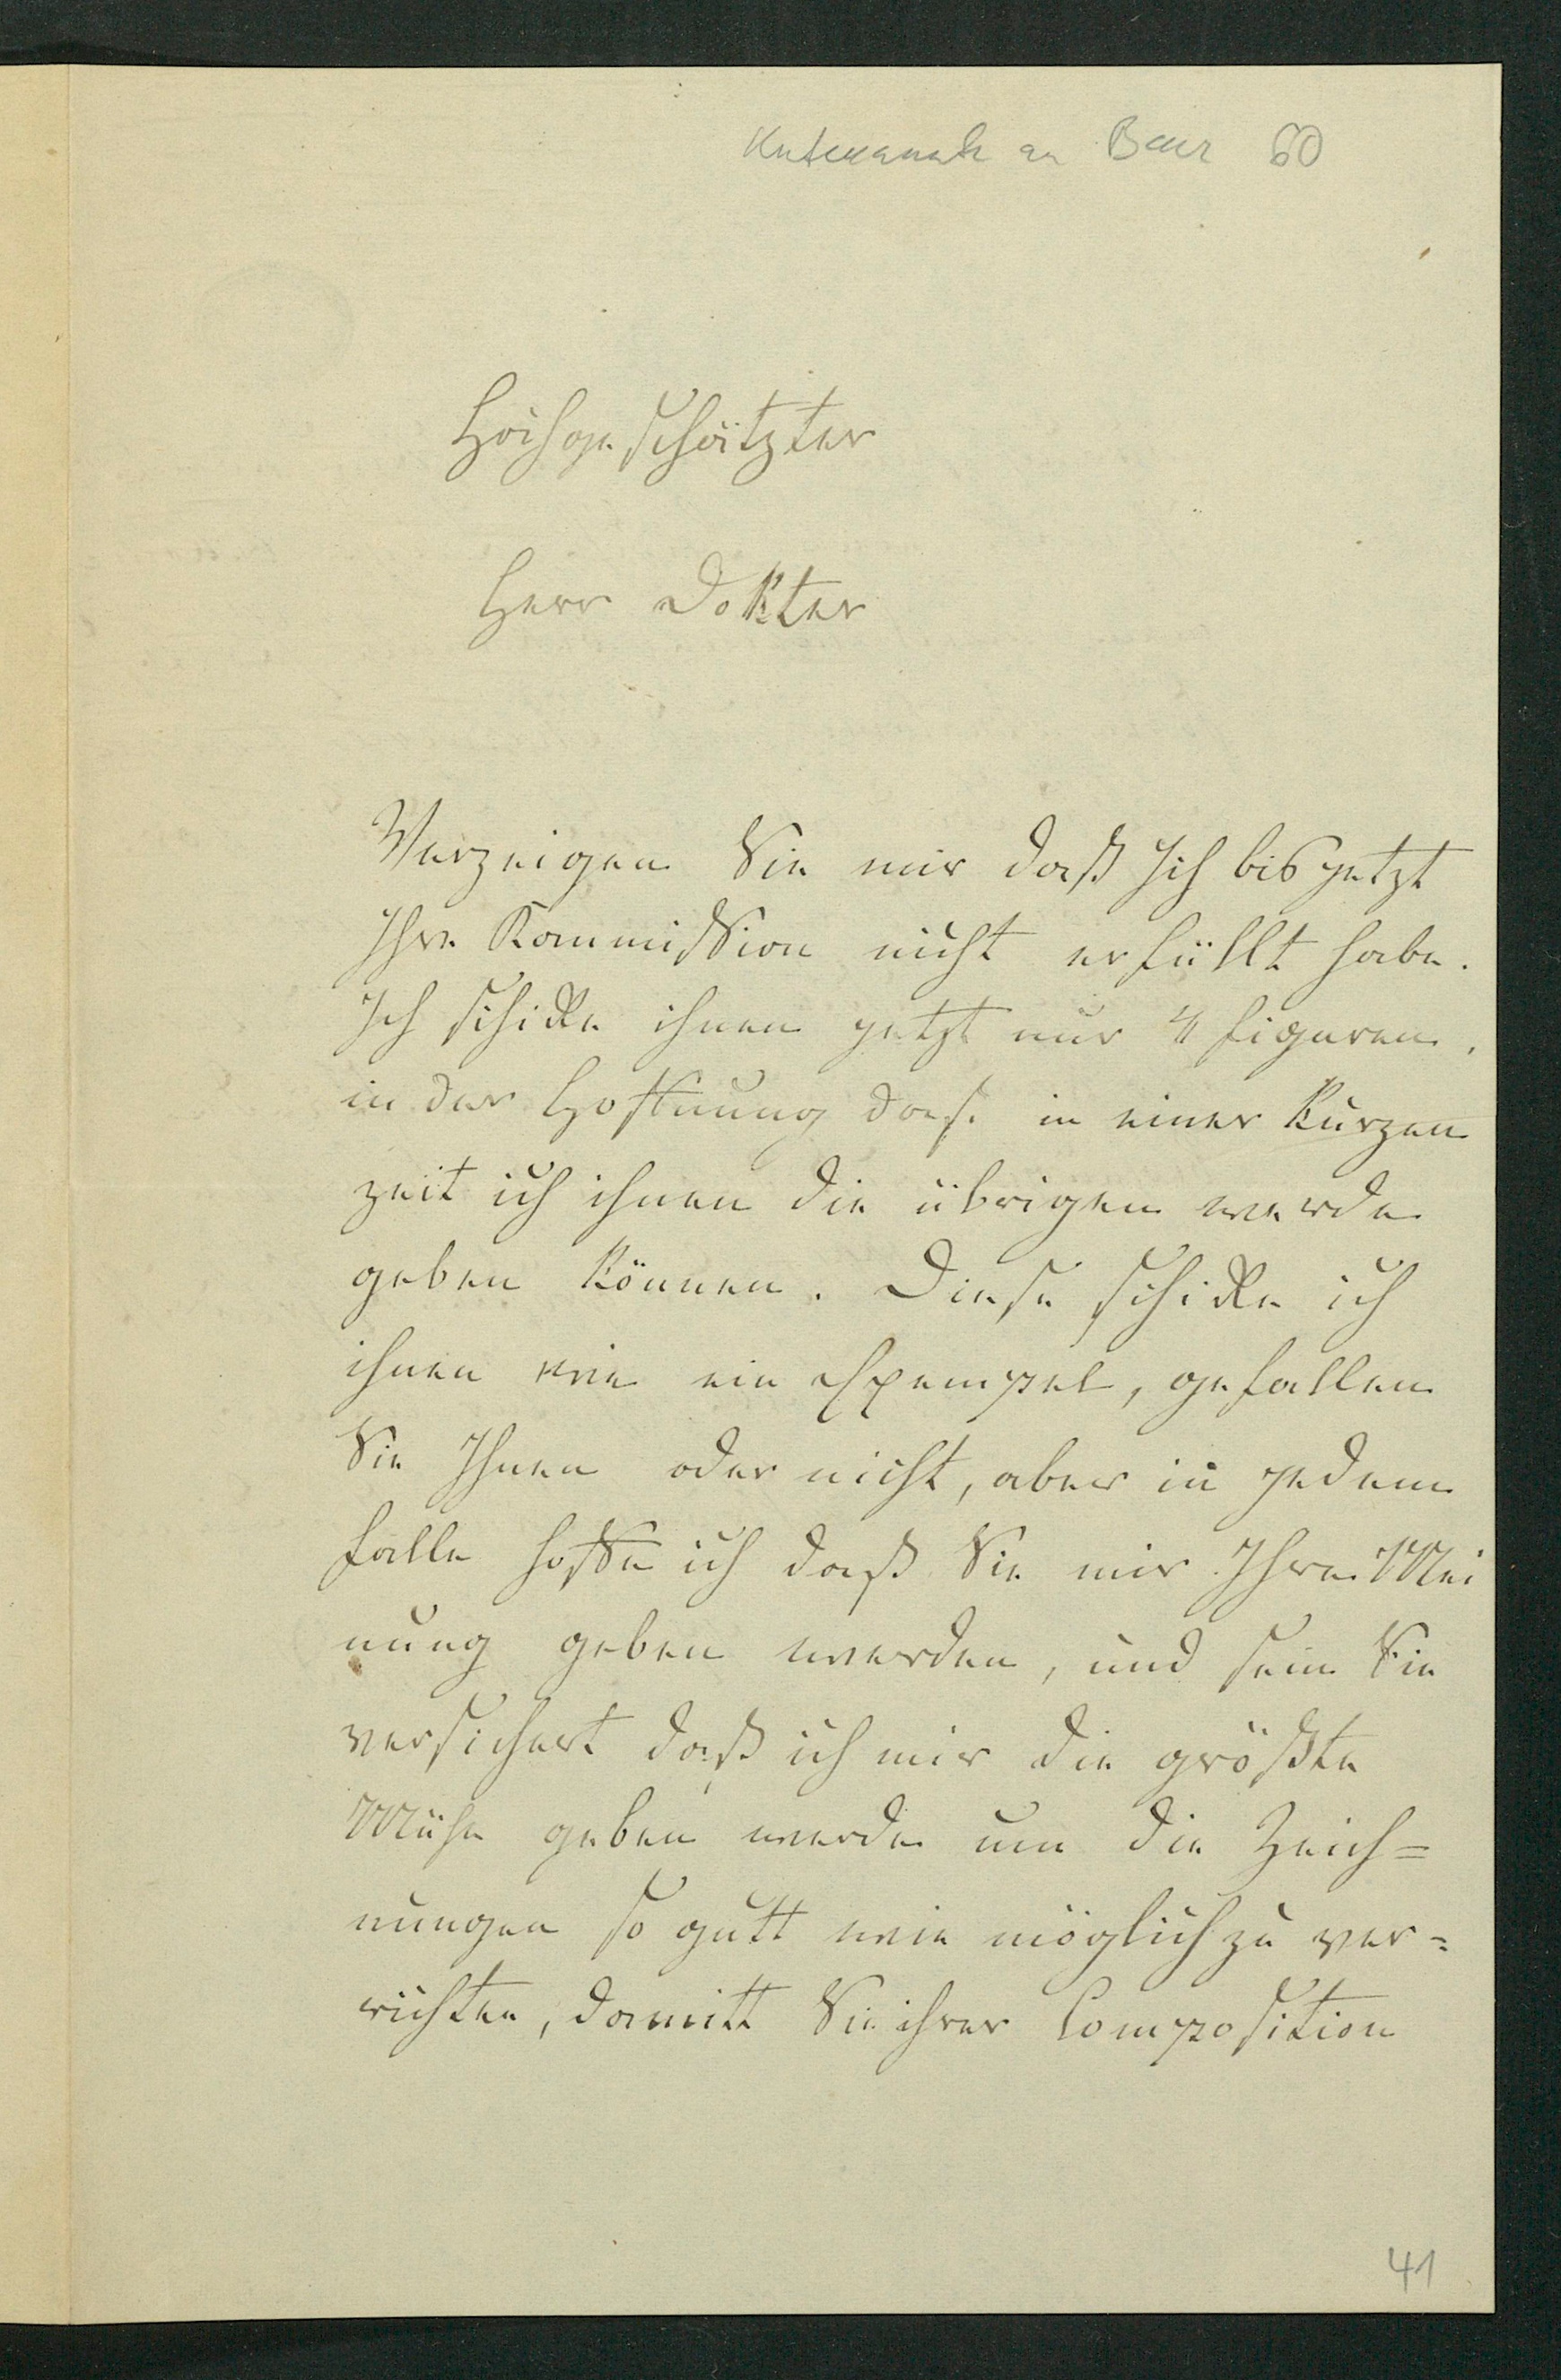 an Baer 60
Hochgeschätzter
Herr Dokter
Verzeigen Sie mir daß Ich bis jetzt
Ihre Kommission nicht erfüllt habe.
Ich schikke ihnen jetzt nur 4 figuren,
in der Hoffnung das in einer kurzen
zeit ich ihnen die übrigen werde
geben können. Diese schikke ich
ihnen wie ein Exempel, gefallen
Sie Ihnen oder nicht, aber in jedem
falle hoffe ich daß Sie mir Ihre Mei
nung geben werden, und sein Sie
versichert daß ich mir die größte
Mühe geben werde um die Zeich=
nungen so gutt wie möglich zu ver=
richten, damitt Sie ihrer Composition
41